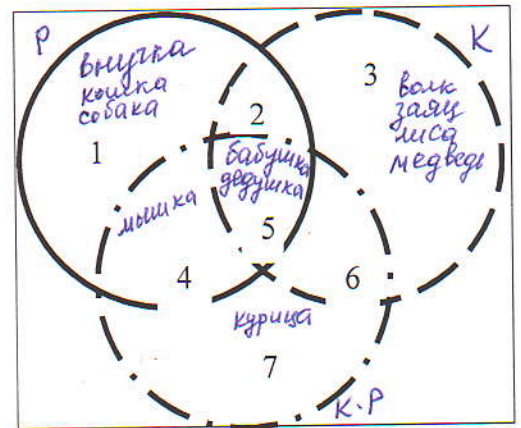 Р
К
внучка
кошка
собака
1
2
3
волк
заяц
лиса
медведь
бабушка
дедушка
мышка
5
4
6
курица
7
К.Р